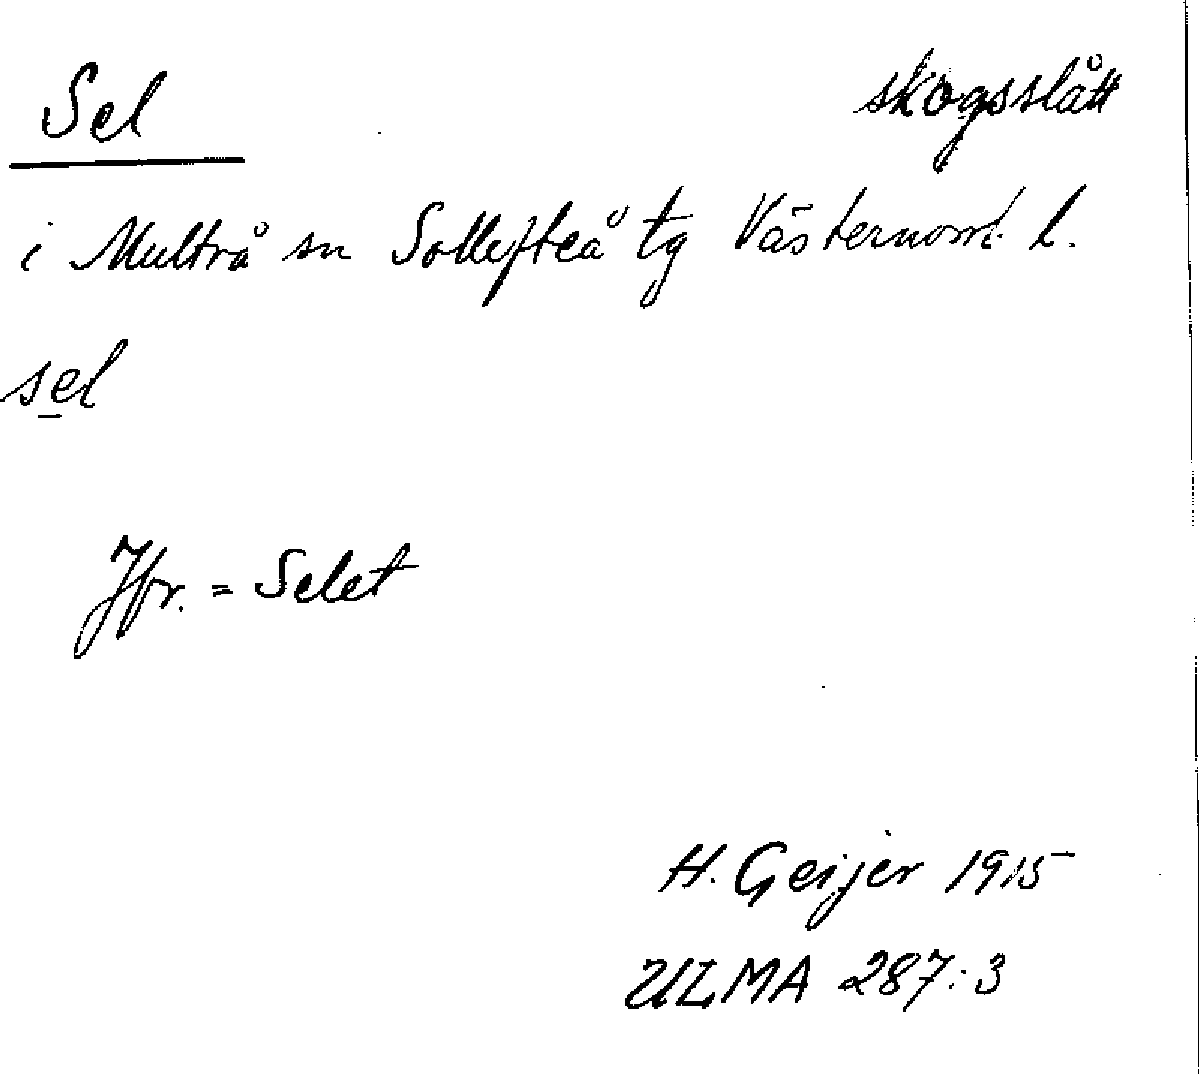 Sel skogsslått
i Multrå sn Sollefteå tg Västernorrl. l.
sel
Jfr. = Selet
H. Geijer 1915
ULMA 287:3